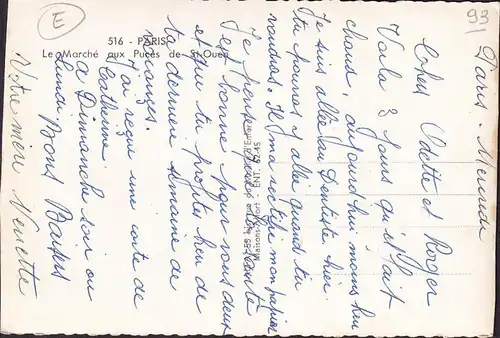 E
93
516 - PARIS
Le Marché aux Puces de St-Ouen
Paris - Mercredi
Chers Odette et Roger
Voila 3 jours qu'il fait
chaud, aujourd'hui moins hier
Je suis allée au Dentiste hier
tu pourras y aller quand tu
voudras. Il m'a rectifié mon
Je pense que la santé
est bonne pour vous deux
et que tu profites bien de
ta dernière semaine de
congés.
J'ai reçue une carte de
Catherine
a Dimanche soir ou
Lundi. Bons Baisers
Votre mère Nenette
Maisons-Alfort ENT. 62-45